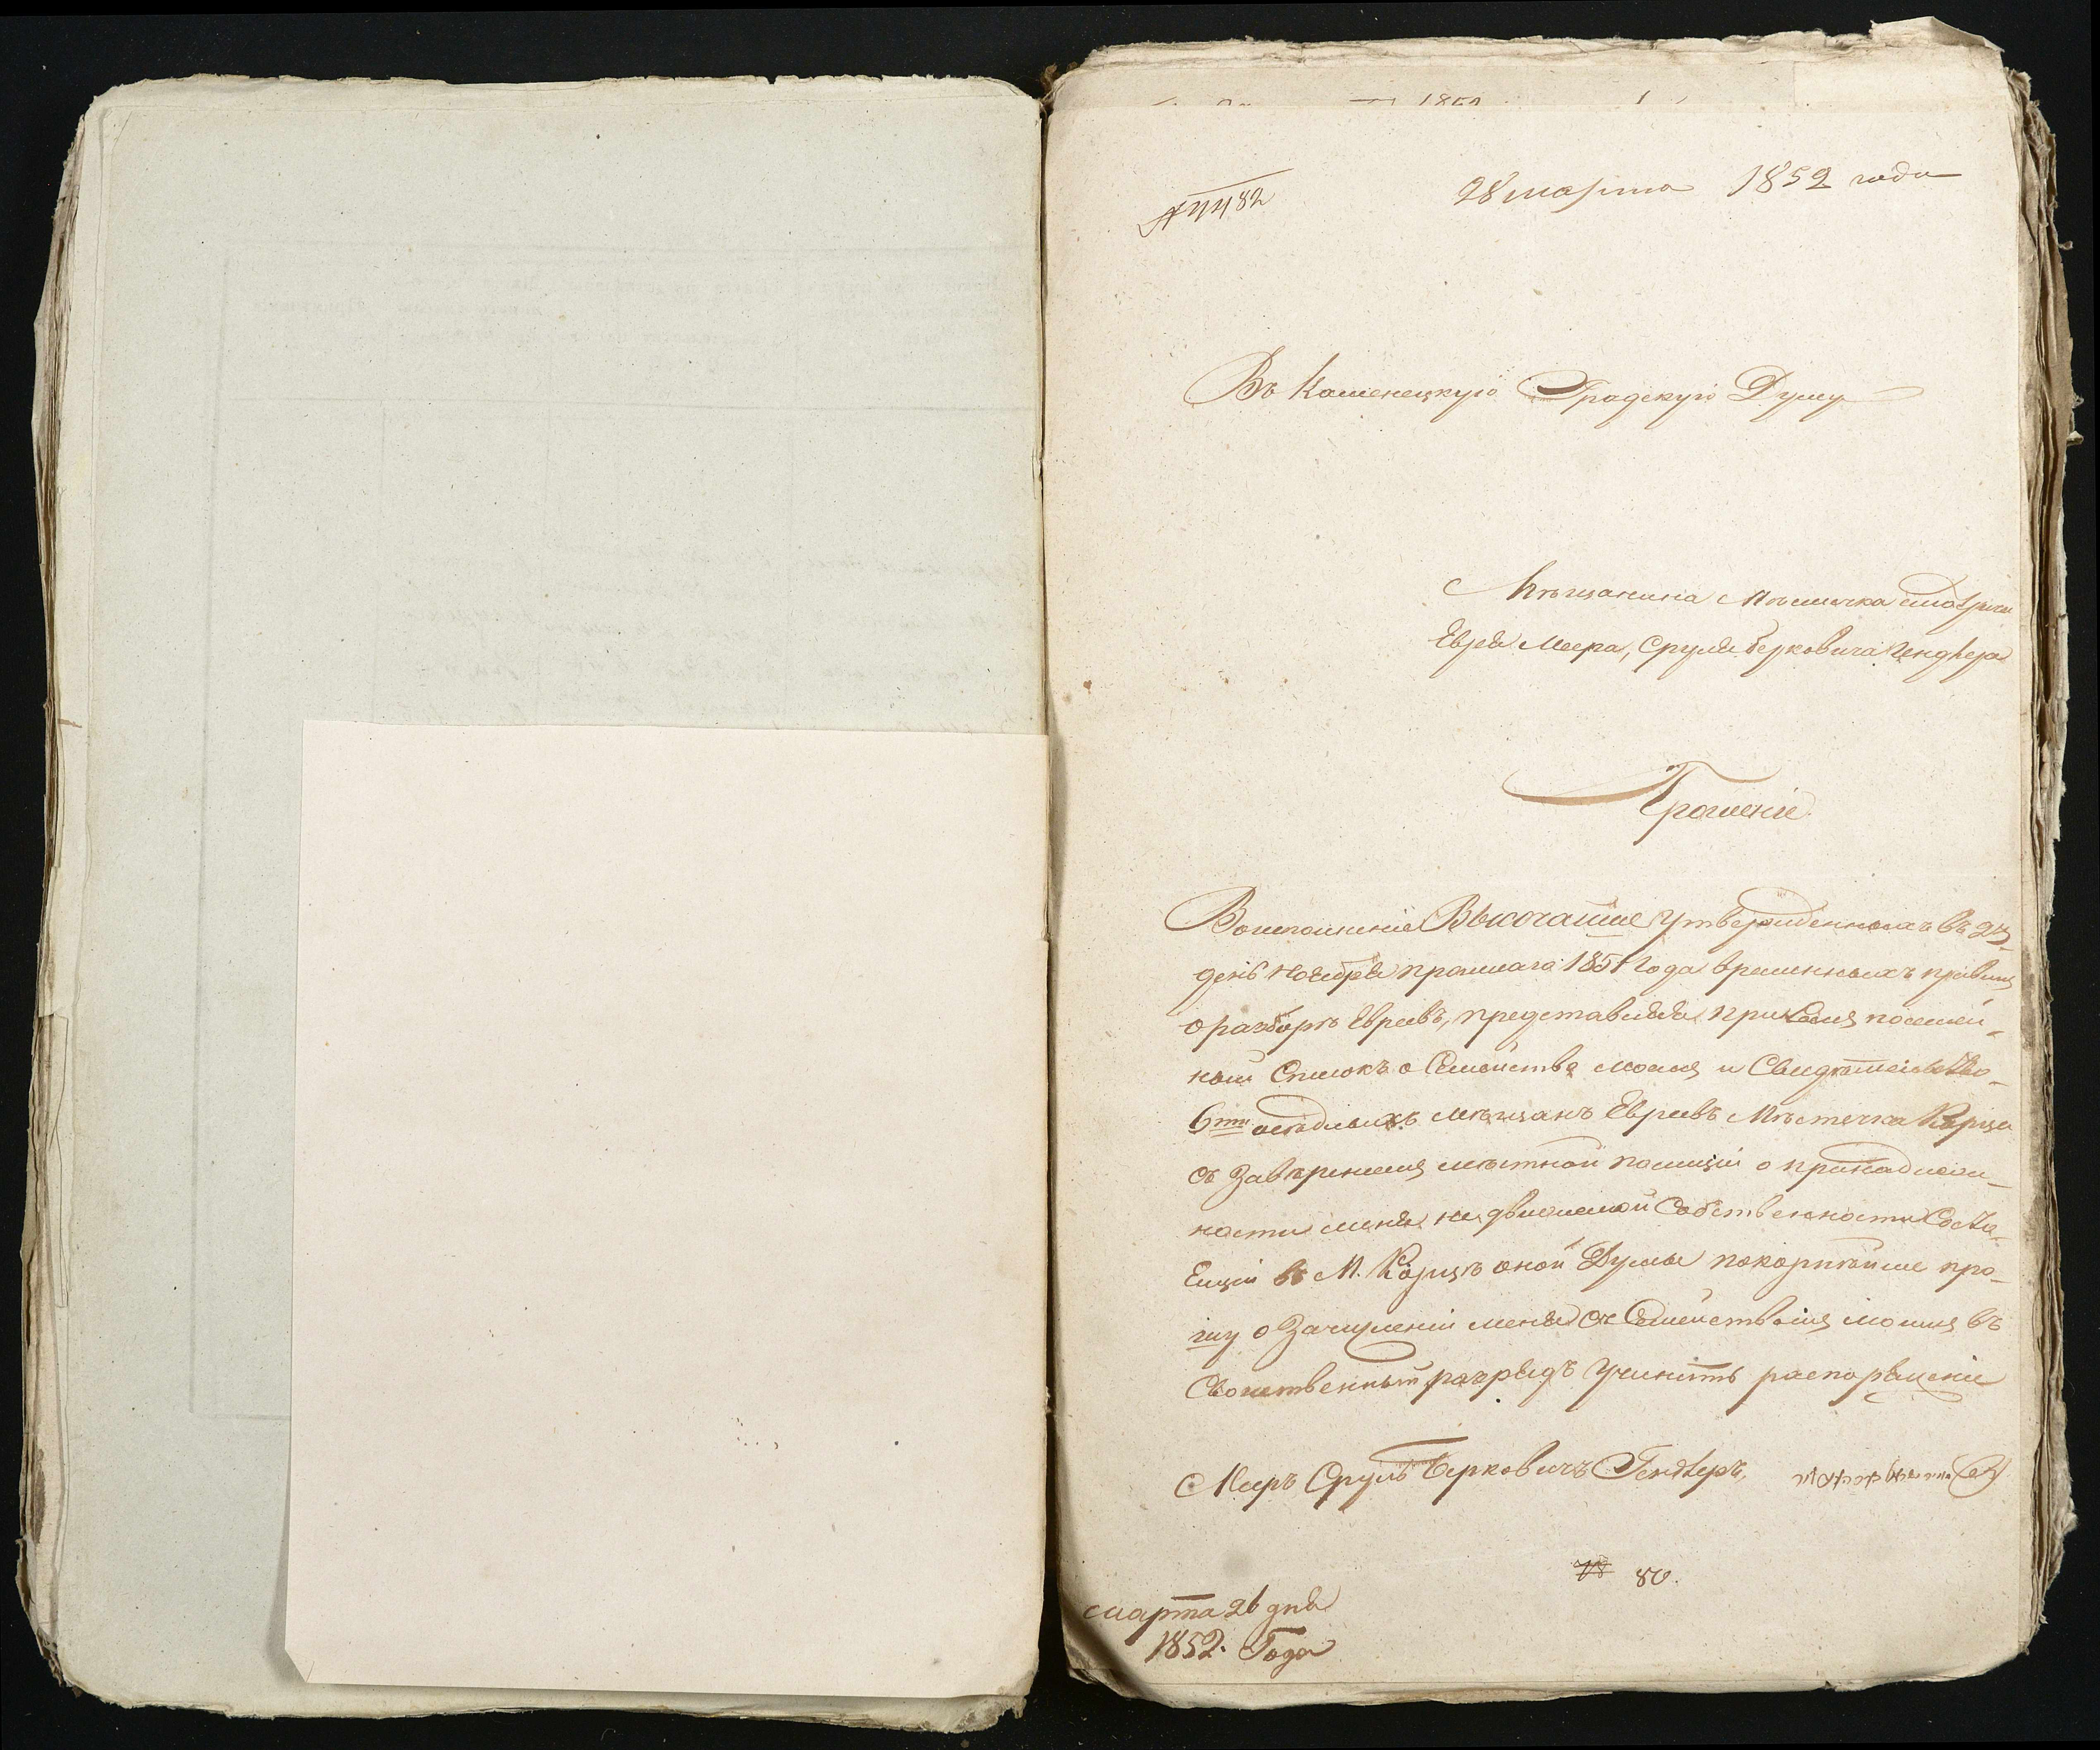 28 марта 1852 года
Въ Каменецкую Градскую Думу
Мѣщанина Мѣстечка
Еврея Меера, Сруля Берковича Гендлера
Прошеніе
Воисполненіе Высочайше Утвержденныхъ въ 23
день Ноября прошлаго 1851 Года временныхъ правилъ
о разборѣ Евреевъ, представляя при семъ посемей-
ный Списокъ о Семействѣ моемъ и Свидѣтельство
6ти осѣдлыхъ мѣщанъ Евреевъ Мѣстечка
съ Завѣреніемъ мѣстной полиціи о принадлеж-
ности мнѣ недвижемой Собственности Состо-
Ещей въ М. оной Думы покорнѣйше про-
шу о Зачисленіи меня съ Семействомъ моимъ въ
разрядъ Учинить распоряженіе
Мееръ Сруль Берковичъ Гендлеръ,
80.
марта 26 дня
1852. Года